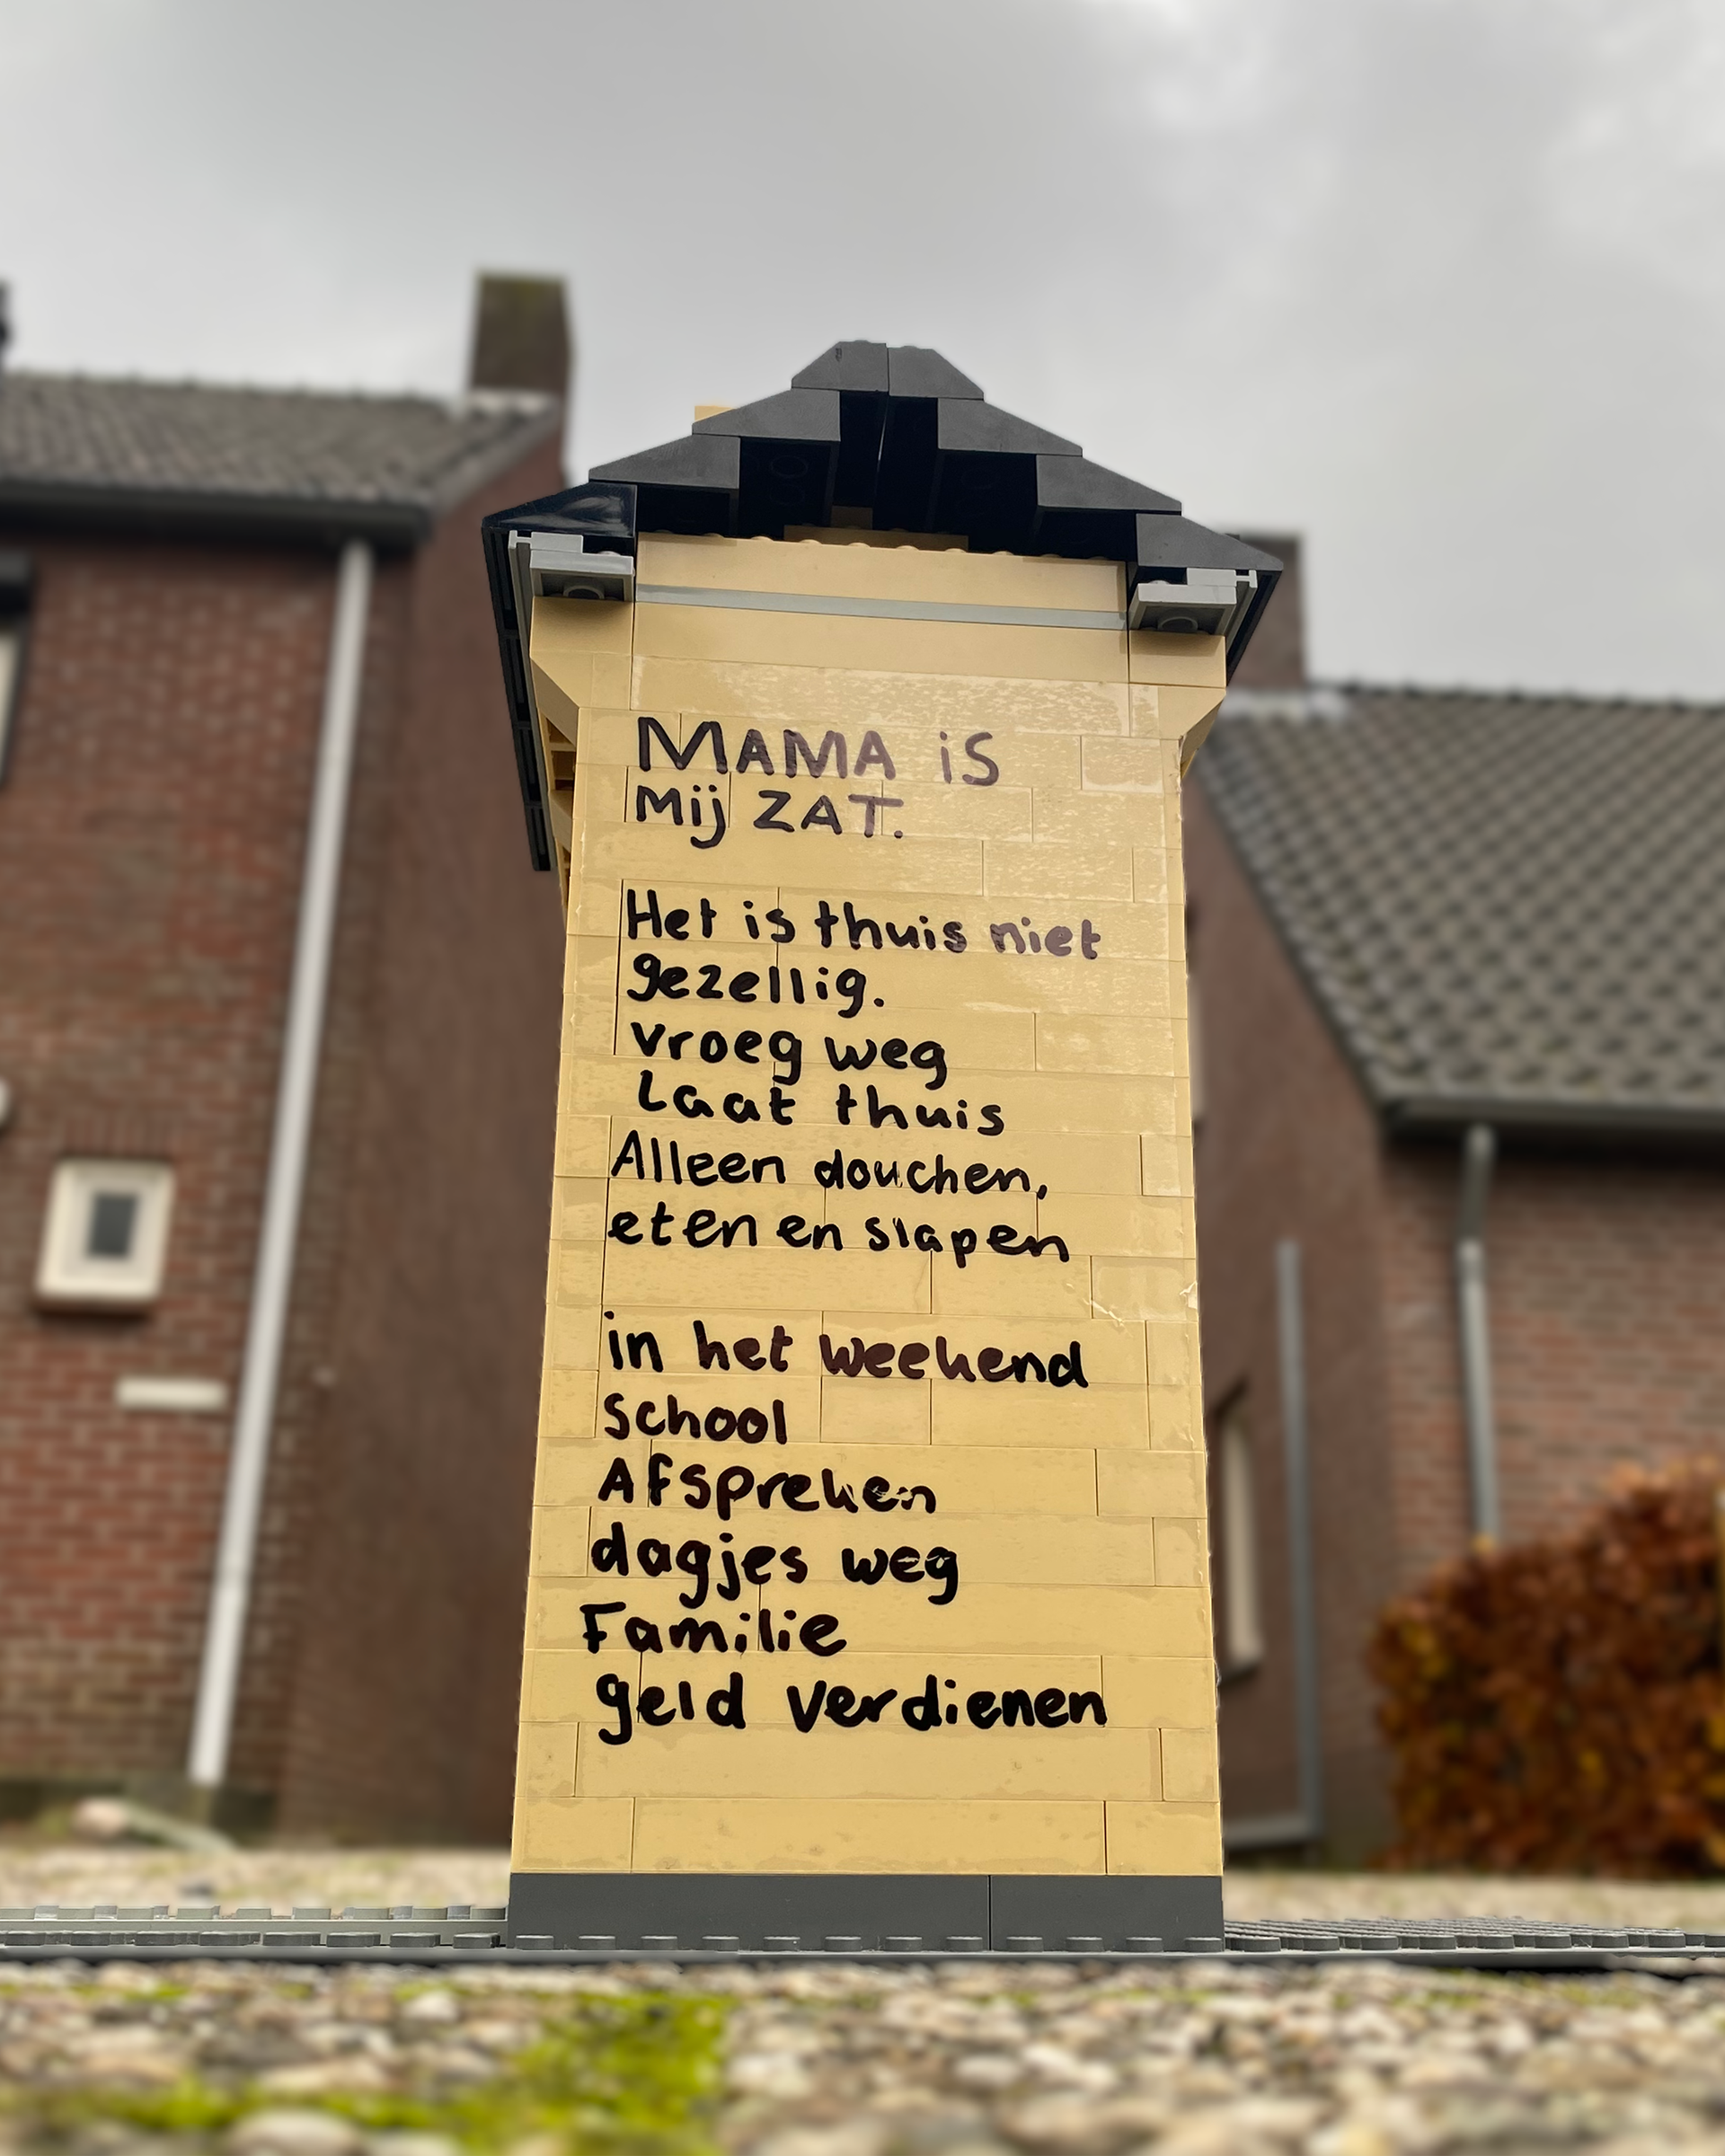 MAMA iS
Mij ZAT.
Het is thuis niet
gezellig.
vroeg weg
Laat thuis
Alleen douchen,
eten en slapen
in het weekend
School
Afspreken
dagjes weg
Familie
geld verdienen